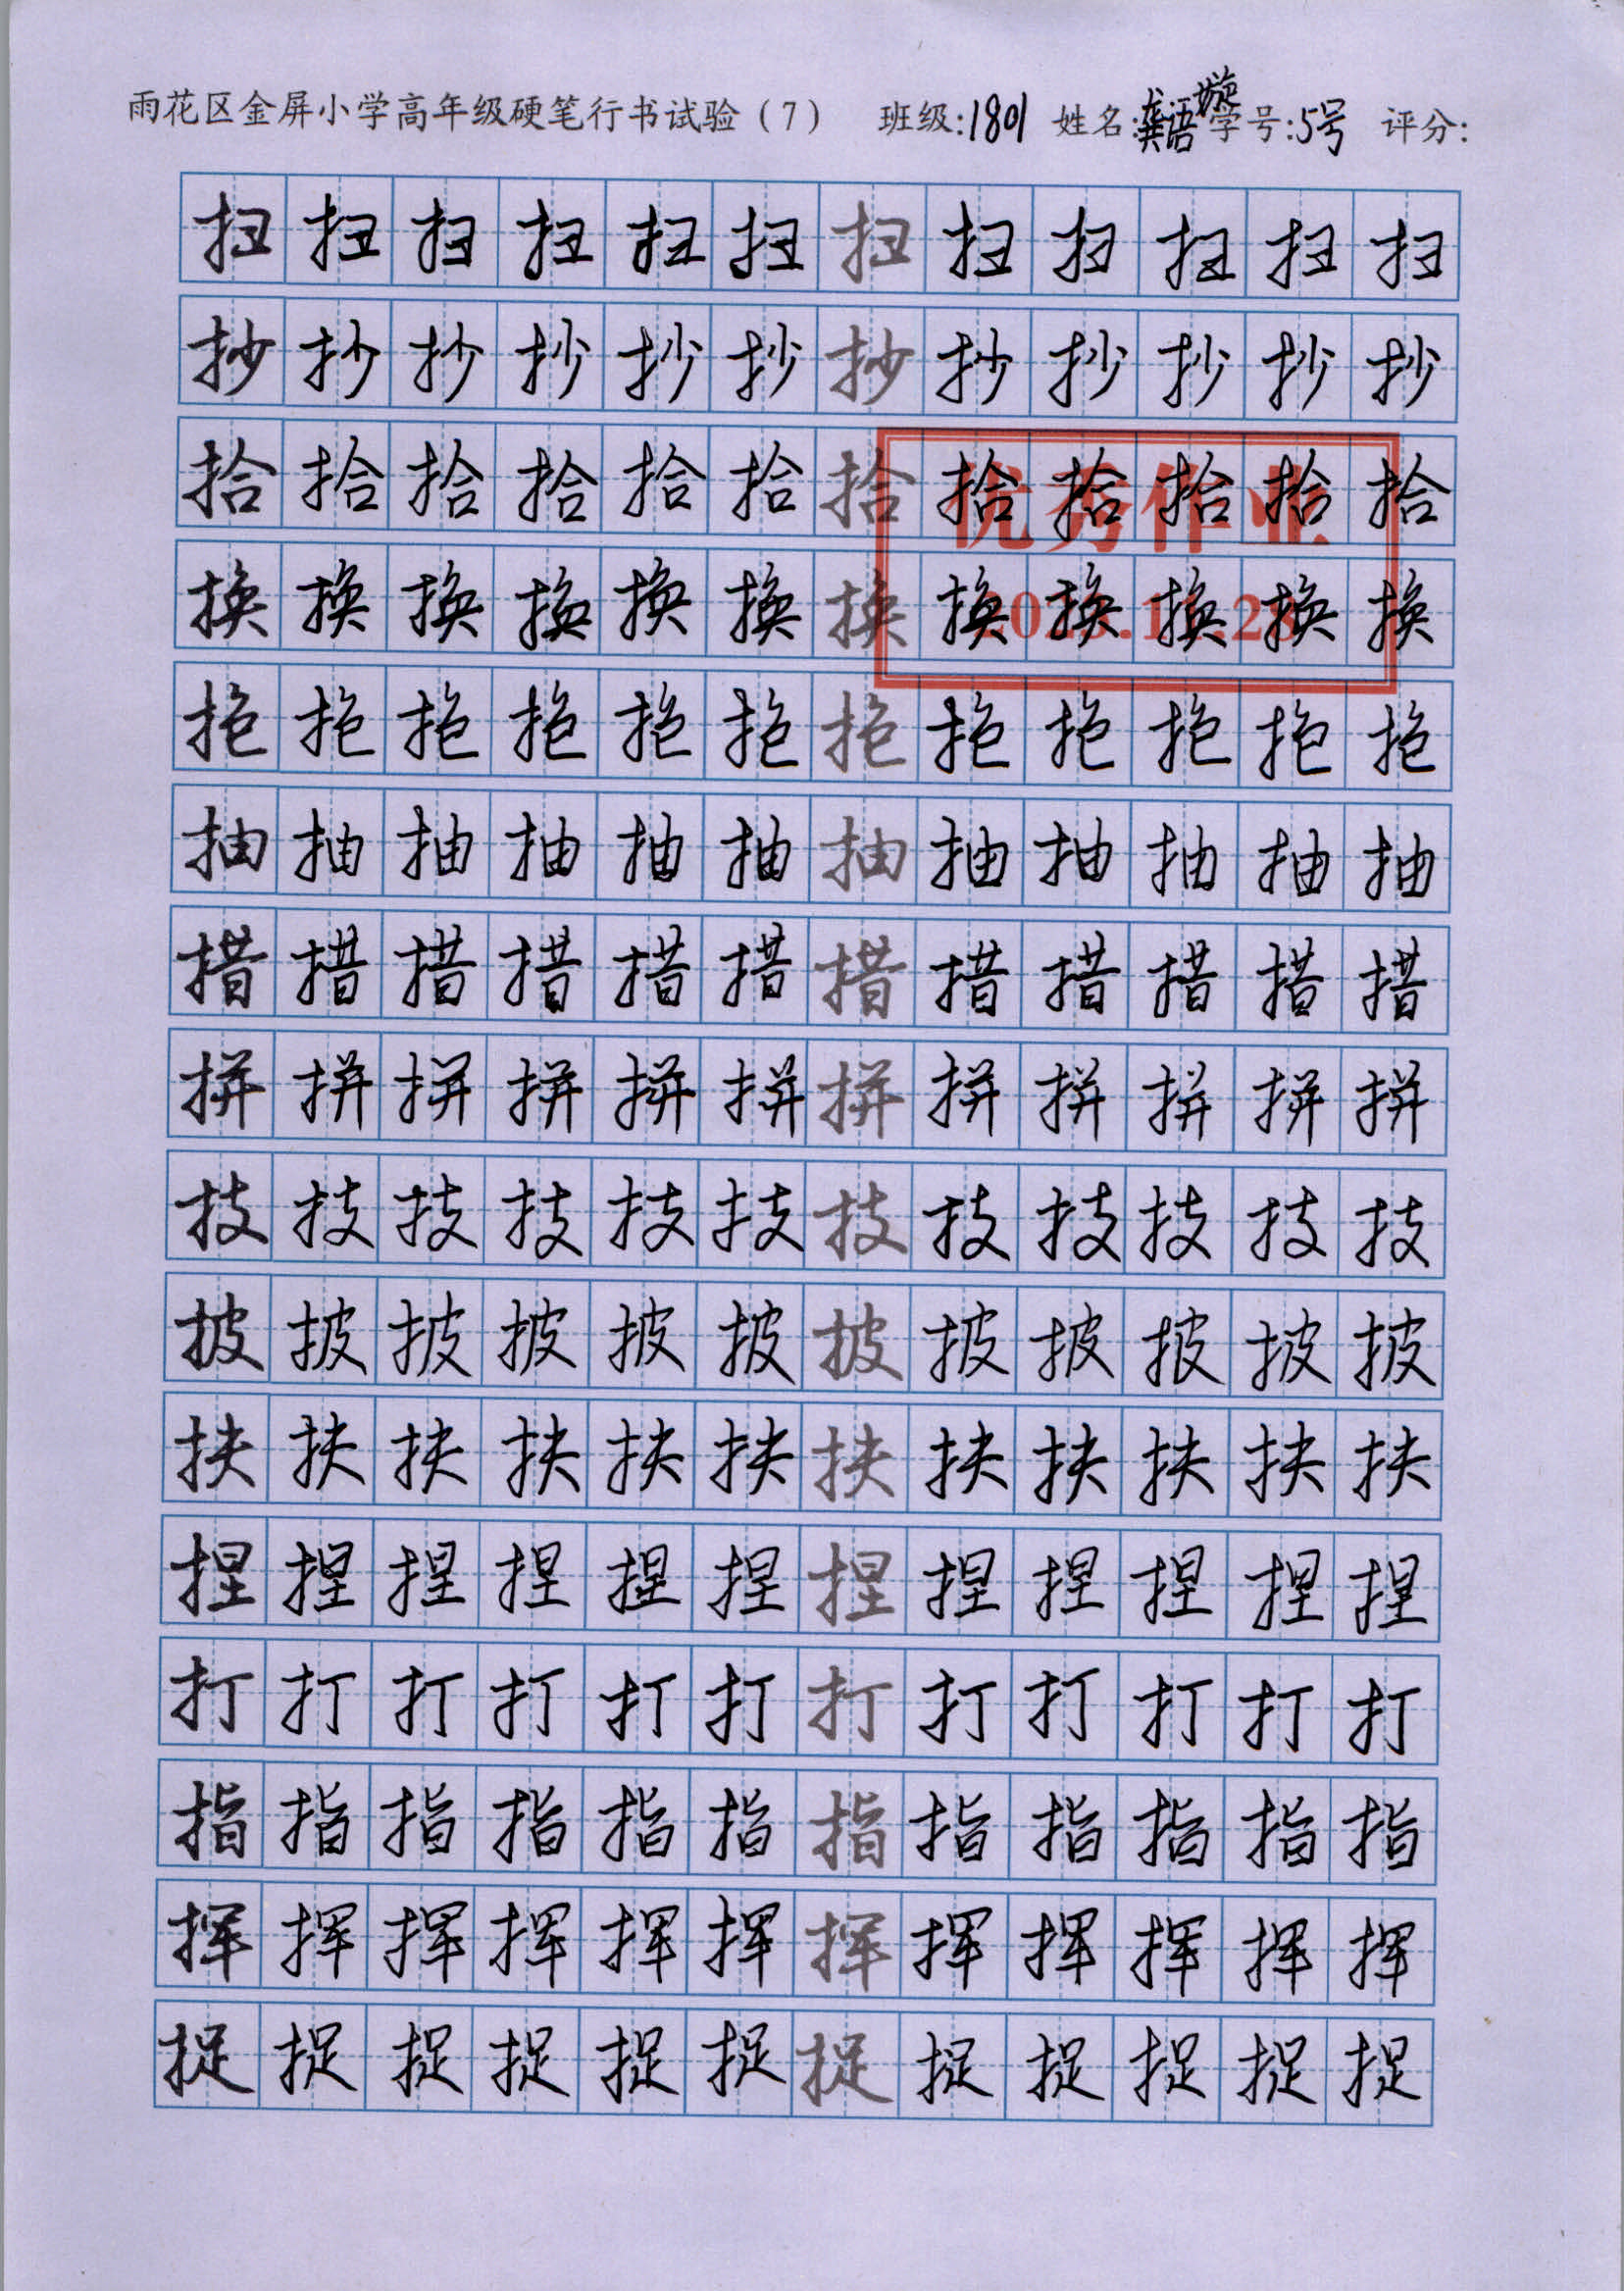 雨花区金屏小学高年级硬笔行书试验（7） 班级:1801 姓名:龚语璇 学号:5号 评分:
扫扫扫扫扫扫扫扫扫扫扫扫
抄抄抄抄抄抄抄抄抄抄抄抄
拾拾拾拾拾拾拾拾拾拾拾拾
优秀作业
换换换换换换换换换换换换
抱抱抱抱抱抱抱抱抱抱抱抱
抽抽抽抽抽抽抽抽抽抽抽抽
措措措措措措措措措措措措
拼拼拼拼拼拼拼拼拼拼拼拼
技技技技技技技技技技技技
披披披披披披披披披披披披
扶扶扶扶扶扶扶扶扶扶扶扶
捏捏捏捏捏捏捏捏捏捏捏捏
打打打打打打打打打打打打
指指指指指指指指指指指指
挥挥挥挥挥挥挥挥挥挥挥挥
捉捉捉捉捉捉捉捉捉捉捉捉